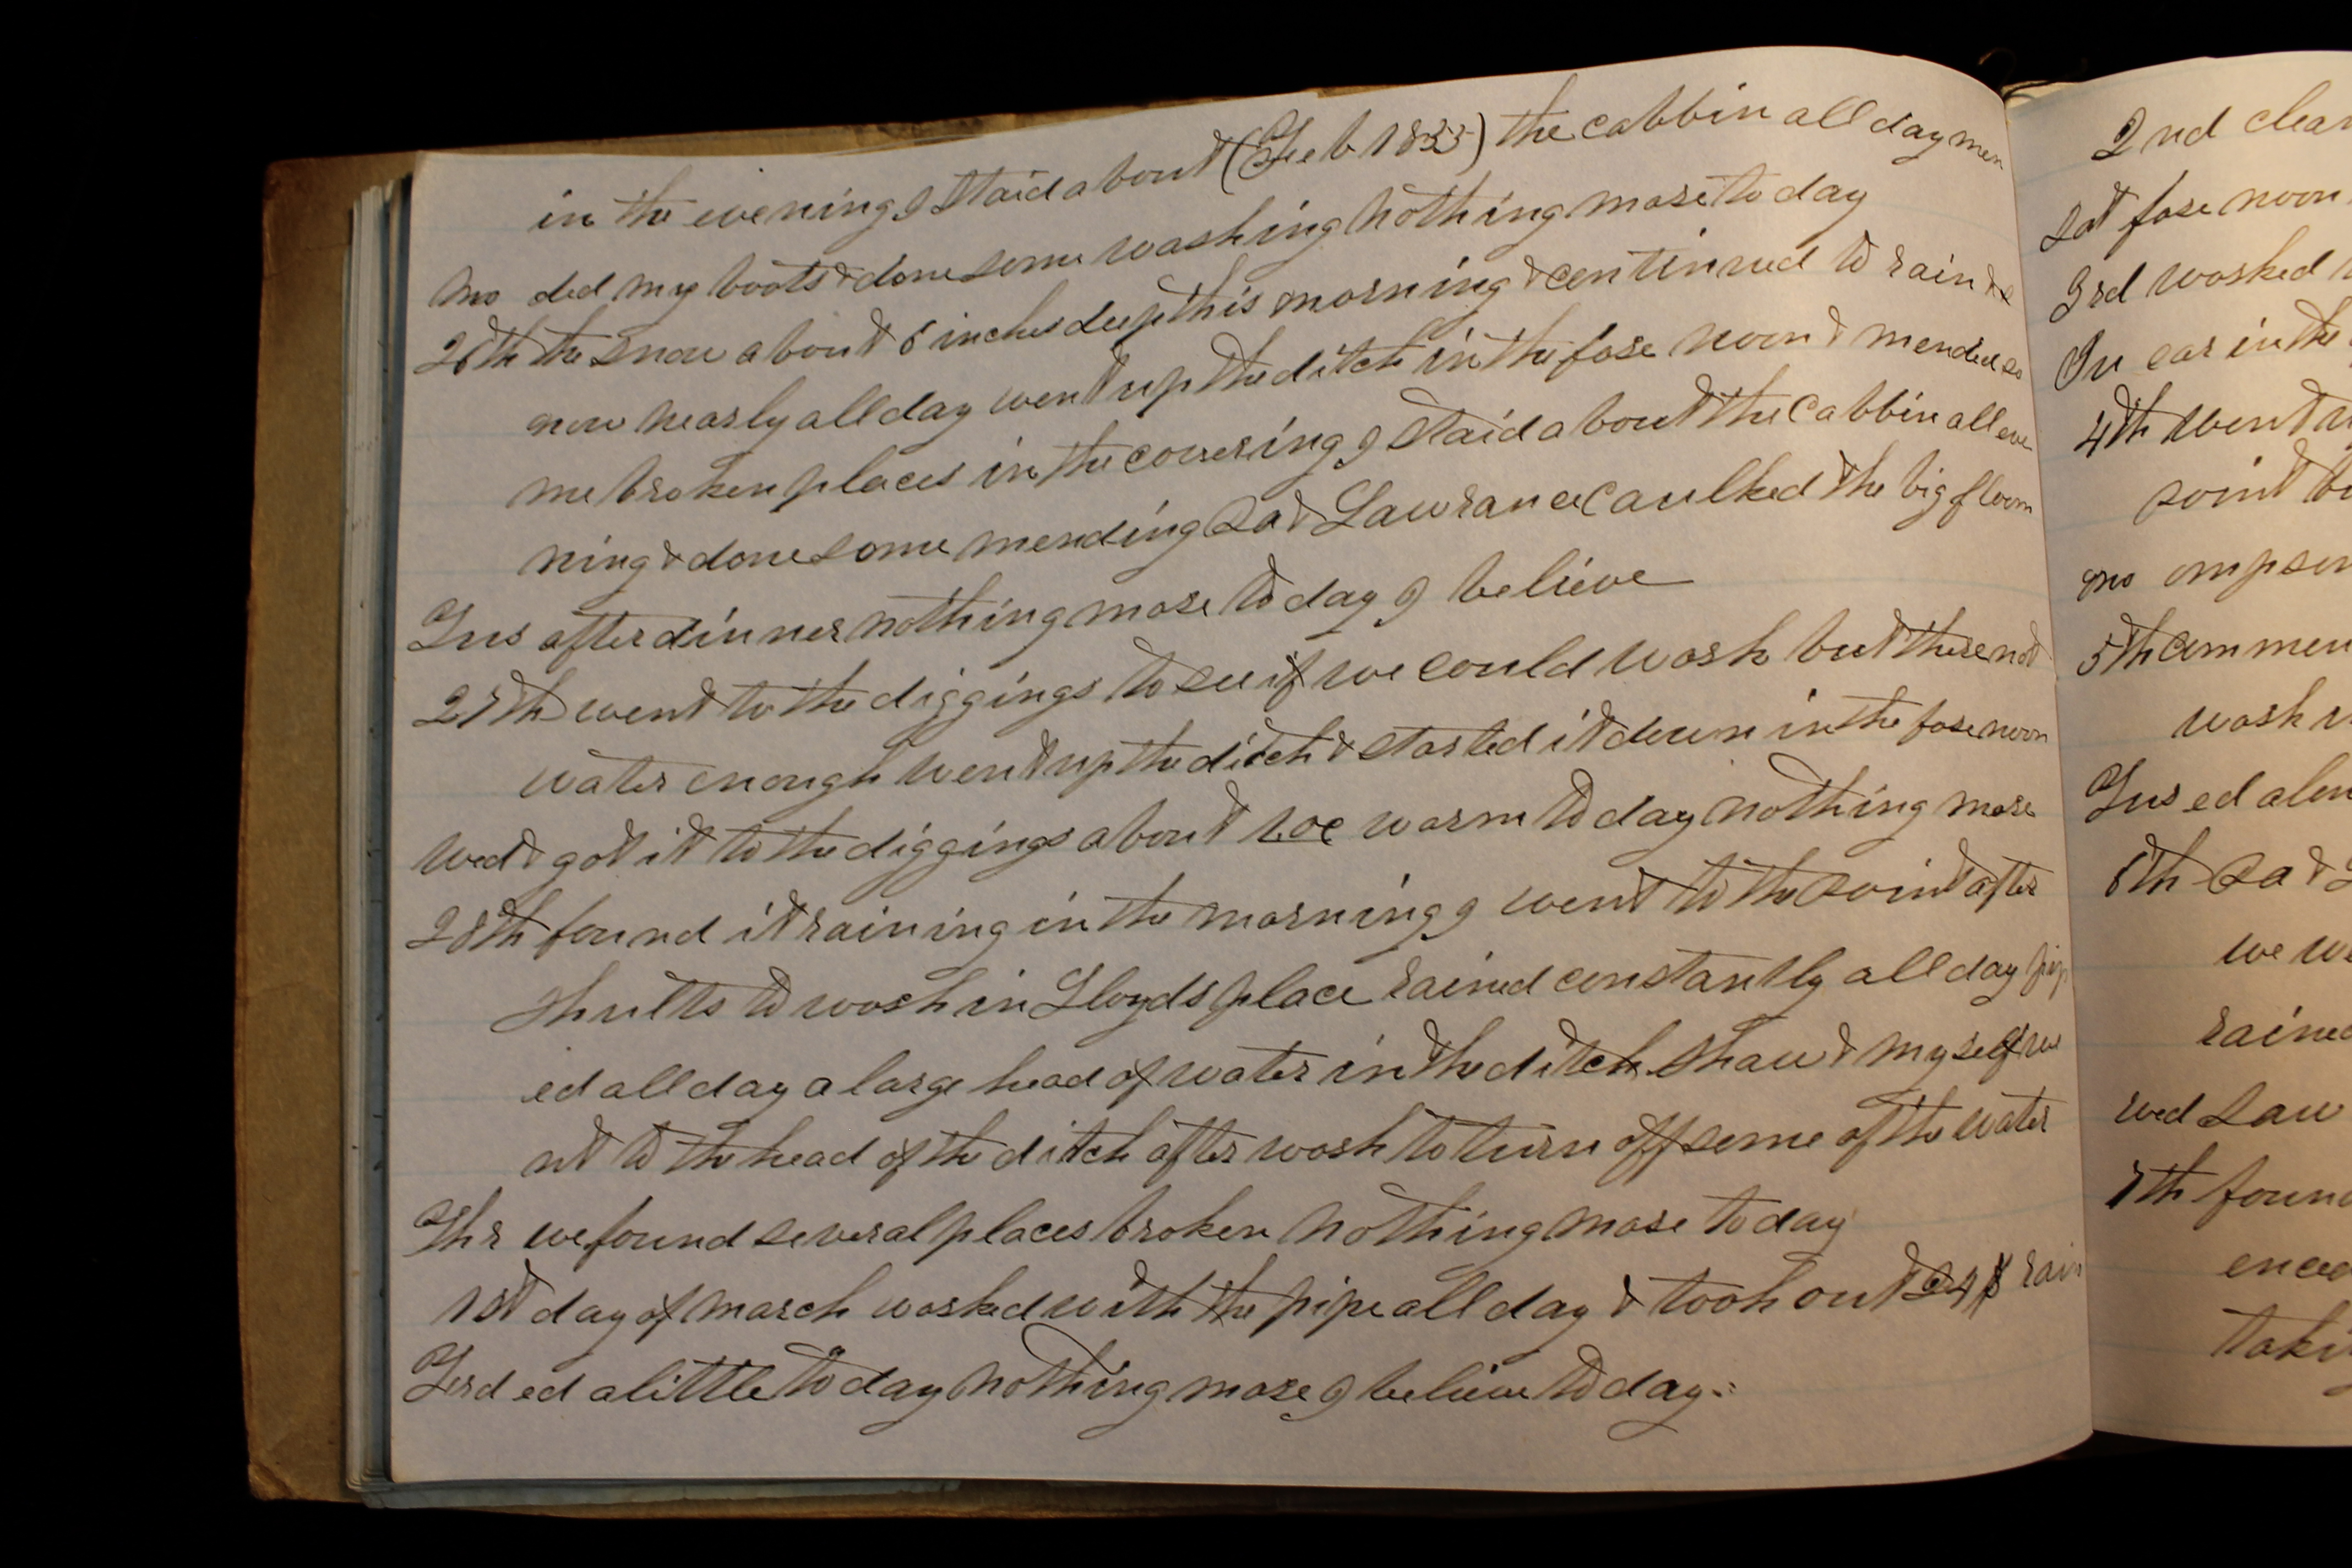 in the evening I staid about (Feeb 1855) the cabbin all day men
Mo ded my boots & done some washing nothing more to day
26th the snow about 6 inches deep this morning & continued to rain & s
now nearly all day went up the ditch in the fore noon & mended so
me broken places in the covering I staid about the cabbin all eve
ning & done some mending Sa & Lawrance Caulked the big floom
Tus after dinner nothing more to day I believe
27th went to the diggings to see if we could wash but there not
water enough went up the ditch & started it down in the fore noon
Wed & got it to the diggings about 1 oc warm to day nothing more
28th found it raining in the morning I went to the point after
Shults to wash in Lloyds place rained constantly all day pip
ed all day a large head of water in the ditch Shaw & my self we
nt to the head of the ditch after wash to turn off some of the water
Thr we found several places broken nothing more to day
1st day of march worked with the pipe all day & took out 24 $ rain
Frd ed a little to day nothing more I believe to day
2nd clear
Sat fore noon
3rd worked
Su ear in the
4th went
point
mo
5th Commen
wash
Tus ed
6th Sa &
we
rained
wed Law
7th found
enced